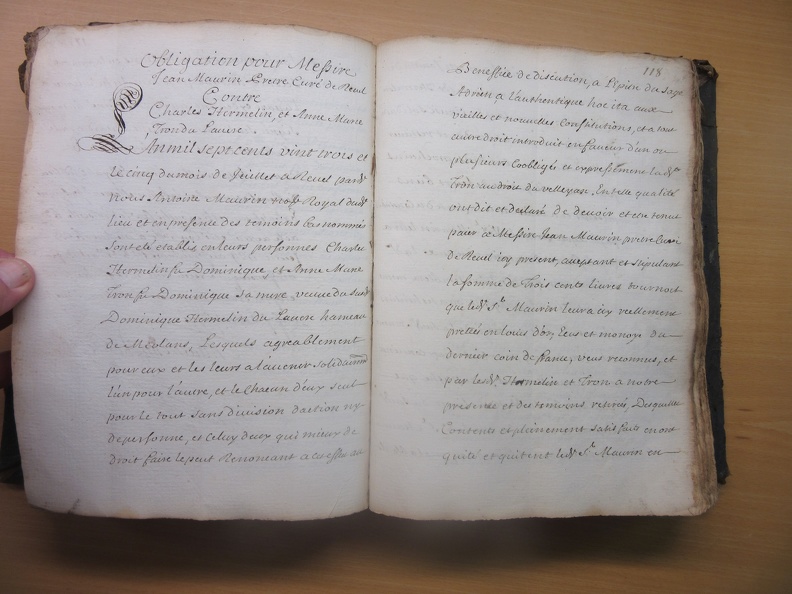 Obligation pour Messire
Jean Maurin Pretre Curé de Revel
Contre
Charles Hermelin, et Anne Marie
Tron du Lavere
L'An mil sept cents vint trois et
le cinq du mois de Jeuillet a Revel pard.t
Nous Antoine Maurin no.re Royal dud.t
lieu et en présence des temoins bas nommés
sont eté etablis en leurs personnes Charles
Hermelin fu Dominique, et Anne Marie
Tron fu Dominique sa mere veuve du sud.t
Dominique Hermelin du Lavere hameau
de Méolans, Lesquels agreablement
pour eux et les leurs a l'avenir solidairem.t
l'un pour l'autre, et le Chacun d'eux seul
pour le tout sans division d'action ny
de personne, et Celuy d'eux qui mieux de
droit faire le peut Renonceant a ces effets au
118
Beneffice de discution, a l'Epitre du
Adrien a l'authentique hoc ita aux
vieilles et nouvelles Constitutions, et a tout
autre droit introduit en faveur d'un ou
plusieurs Coobligés et expressement lad.te
Tron au droit du velleyan. En telle qualité
ont dit et declaré de devoir et etre tenus
paier a Messire Jean Maurin pretre Curé
de Revel icy present, aceptant et stipulant
la somme de Trois cents livres tournois
que led.t S.r Maurin leur a icy reellement
prettés en louis d'or, Ecus et monoye du
dernier coin de france, veus reconnus, et
par lesd.ts Hermelin et Tron a notre
présence et des temoins retirés, Desquelles
Contents et pleinement satisfaits en ont
quité et quittent led.t S.r Maurin en